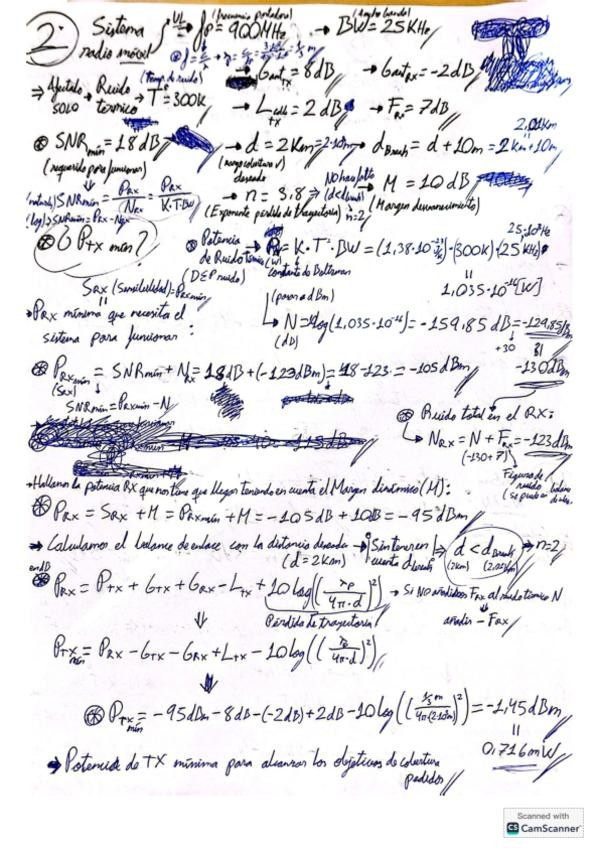 2. Sistema radio móvil
UL (frecuencia portadora)
fp = 900MHz → BW = 25KHz
→ Gant TX = 8dB → Gant RX = -2dB
⇒ Afectado SOLO → Ruido térmico → (temp. de ruido) T = 300K → L TX = 2dB → F RX = 7dB
⊛ SNR min = 18dB (requerido para funcionar) → d = 2Km = 2·10³m → d Break = d + 10m = 2Km + 10m
2,01Km
(natural) SNR min = P RX / N RX = P RX / K·T·BW → n = 3,8 → No hace falta (d < d break) n = 2 → M = 10dB
(log) SNR min = P RX - N RX (Exponente pérdida de trayectoria) (Margen desvanecimiento)
⊛ ¿P TX min? ⊛ Potencia de Ruido térmico (DEP ruido) → = K·T·BW = (1,38·10⁻²³)·(300K)·(25KHz)
25·10³Hz
Constante de Boltzman
1,035·10⁻¹⁶[W]
S RX (Sensibilidad) = P RX min
→ P RX mínima que necesita el sistema para funcionar:
(paso a dBm)
N = 10log(1,035·10⁻¹⁶) = -159,85dB = -129,85
(dB) +30
-130dBm
⊛ P RX min = SNR min + N RX = 18dB + (-123dBm) = 18-123 = -105dBm
(S RX)
SNR min = P RX min - N
⊛ Ruido total en el RX:
N RX = N + F RX = -123dBm
(-130+7)
Figura de ruido
→ Hallamos la potencia RX que nos tiene que llegar teniendo en cuenta el Margen dinámico (M):
⊛ P RX = S RX + M = P RX min + M = -105dB + 10dB = -95dBm
→ Calculamos el balance de enlace con la distancia deseada (d = 2Km) → Sin tener en cuenta d break ⇒ d < d Break ⇒ n=2
(2Km) (2,01Km)
en dB
⊛ P RX = P TX + G TX + G RX - L TX + 10log((λp / 4π·d)²) → Si NO añadimos F RX al ruido térmico N
Pérdida de trayectoria añadir - F RX
P TX min = P RX - G TX - G RX + L TX - 10log((λp / 4π·d)²)
⊛ P TX min = -95dBm - 8dB - (-2dB) + 2dB - 10log((1/3 m / 4π(2·10³m))²) = -1,45dBm
0,716mW
→ Potencia de TX mínima para alcanzar los objetivos de cobertura pedidos
Scanned with
CS CamScanner